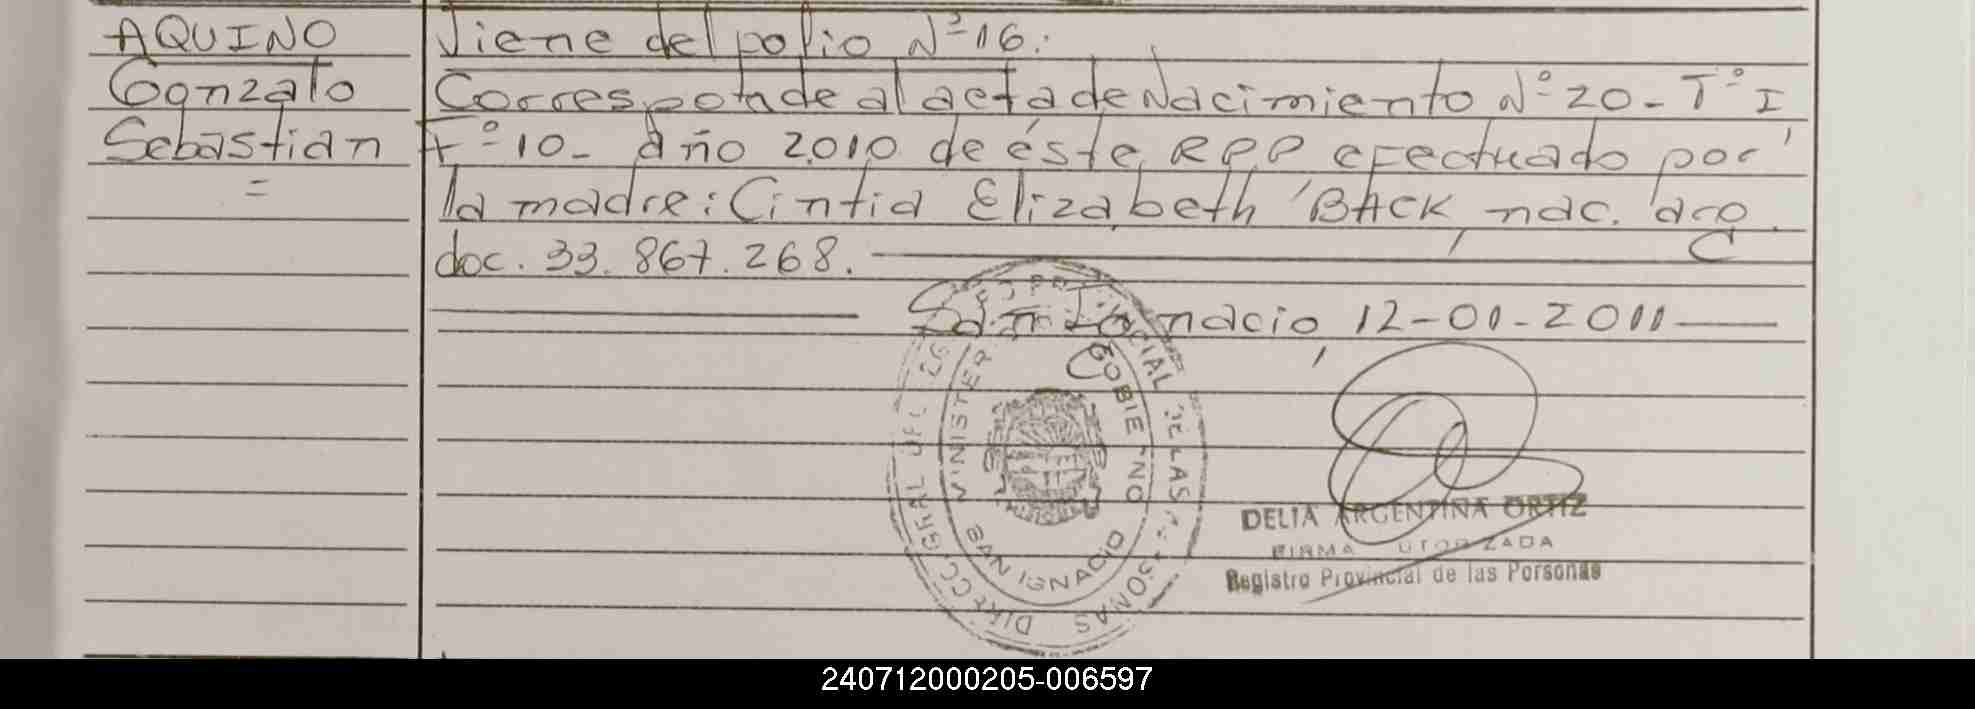 AQUINO
Gonzalo
Sebastian
=
Viene del folio N° 16.
Corresponde al acta de Nacimiento N° 20 - T° I
F° 10 - año 2010 de éste RPP efectuado por
la madre: Cintia Elizabeth BACK, nac. arg.
doc. 33.867.268.
San Ignacio, 12-01-2011
MINISTER GOBIERNO
SAN IGNACIO
DE LAS PERSONAS
DELIA ARGENTINA ORTIZ
FIRMA AUTORIZADA
Registro Provincial de las Personas
240712000205-006597